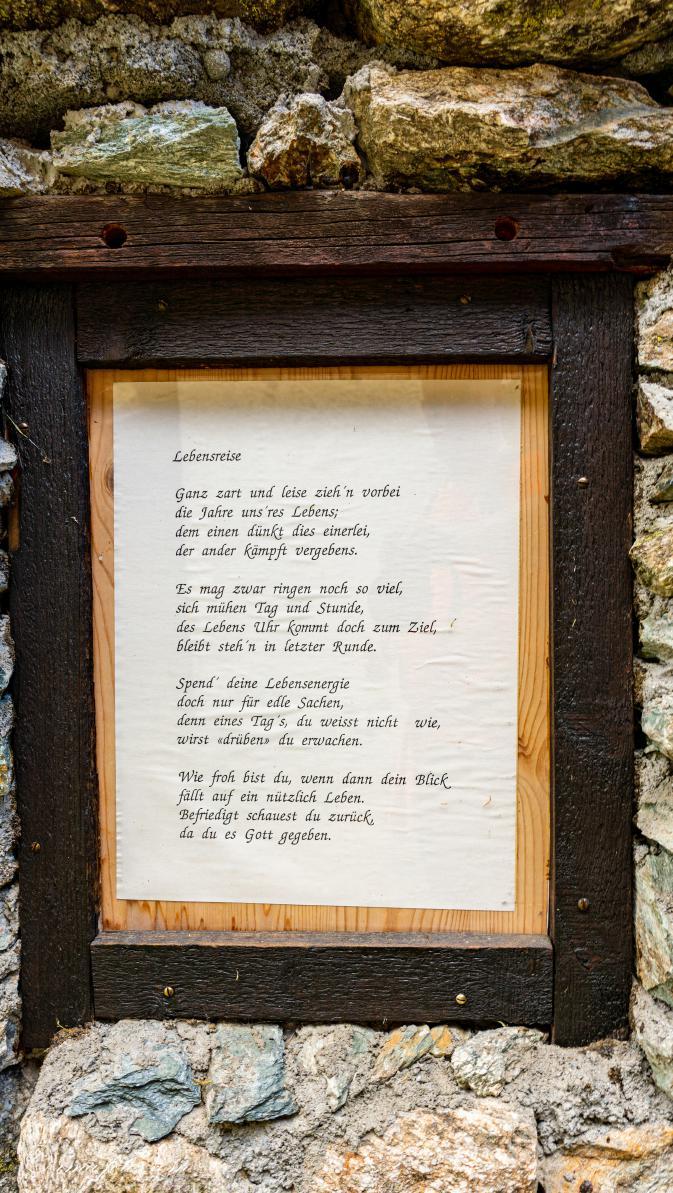 Lebensreise
Ganz zart und leise zieh´n vorbei
die Jahre uns´res Lebens;
dem einen dünkt dies einerlei,
der ander kämpft vergebens.
Es mag zwar ringen noch so viel,
sich mühen Tag und Stunde,
des Lebens Uhr kommt doch zum Ziel,
bleibt steh´n in letzter Runde.
Spend´ deine Lebensenergie
doch nur für edle Sachen,
denn eines Tag´s, du weisst nicht wie,
wirst «drüben» du erwachen.
Wie froh bist du, wenn dann dein Blick
fällt auf ein nützlich Leben.
Befriedigt schauest du zurück,
da du es Gott gegeben.